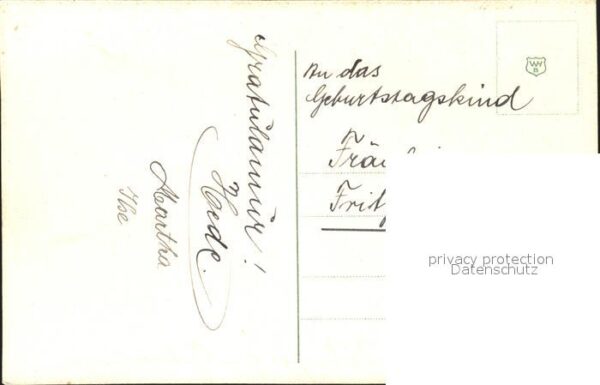 Gratulamur!
Hede.
Martha
Ilse
An das
Geburtstagskind
Frä
Frit
WW
B
privacy protection
Datenschutz